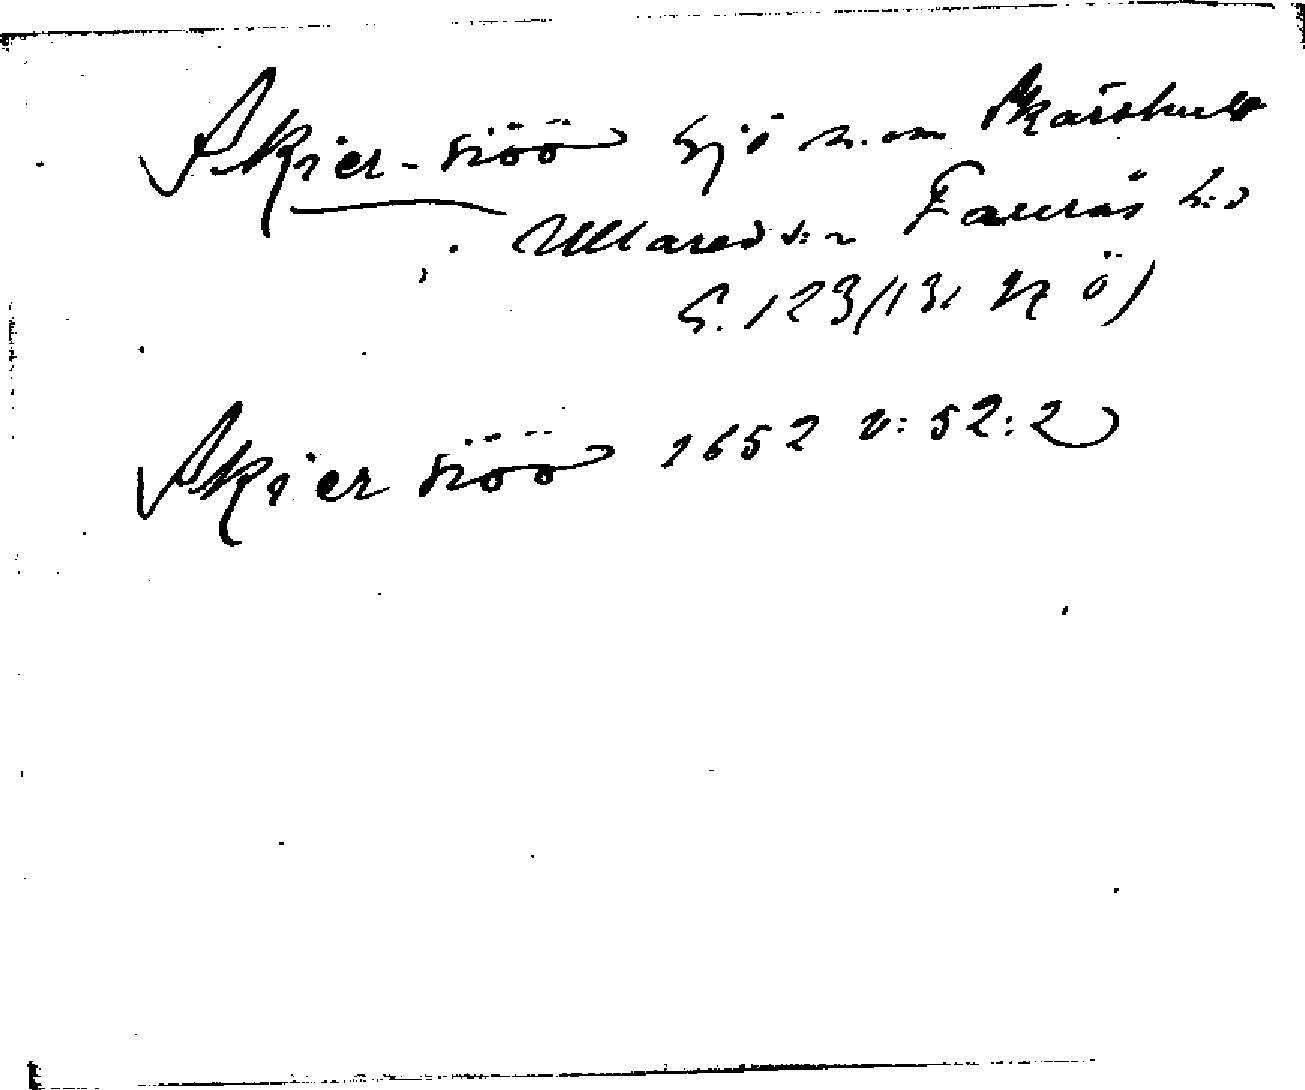 Skier-siöö Sjö n. om Skärshult
Ullared s:n Faurås h:d
S. 123 (131 NÖ)
Skier siöö 1652 v: 52: 2